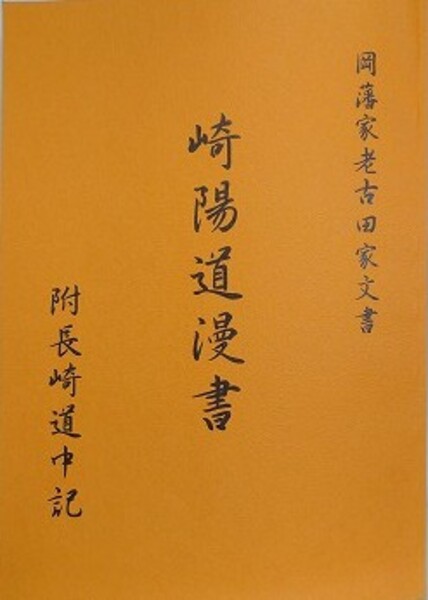 岡藩家老古田家文書
崎陽道漫書
附長崎道中記